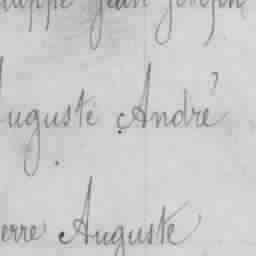 Jean Joseph
Auguste André
erre Auguste